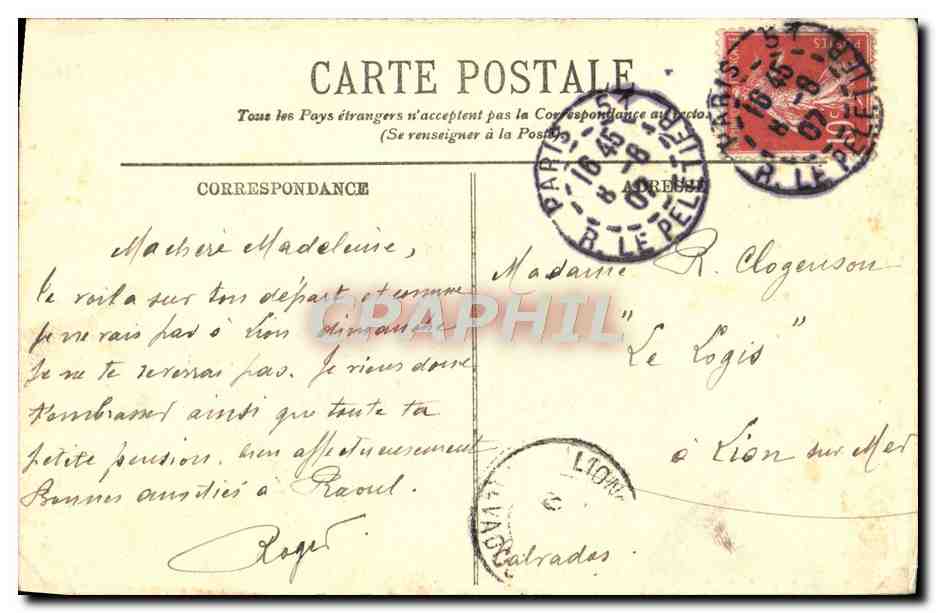 CARTE POSTALE
Tous les Pays étrangers n'acceptent pas la Correspondance au recto.
(Se renseigner à la Poste)
CORRESPONDANCE
ADRESSE
Ma chère Madeleine,
te voila sur ton départ et comme
je ne vais pas à Lion dimanche
Je ne te reverrai pas. Je viens donc
t'embrasser ainsi que toute ta
petite pension. bien affectueusement
Bonnes amitiés à Raoul.
Roger
Madame R. Clogenson
"Le Logis"
à Lion sur Mer
Calvados.
PARIS 57
R. LE PELETIER
16 45
8 -8
07
PARIS 57
R. LE PELETIER
16 45
8 -8
07
LION
CALVADOS
CPAPHIL